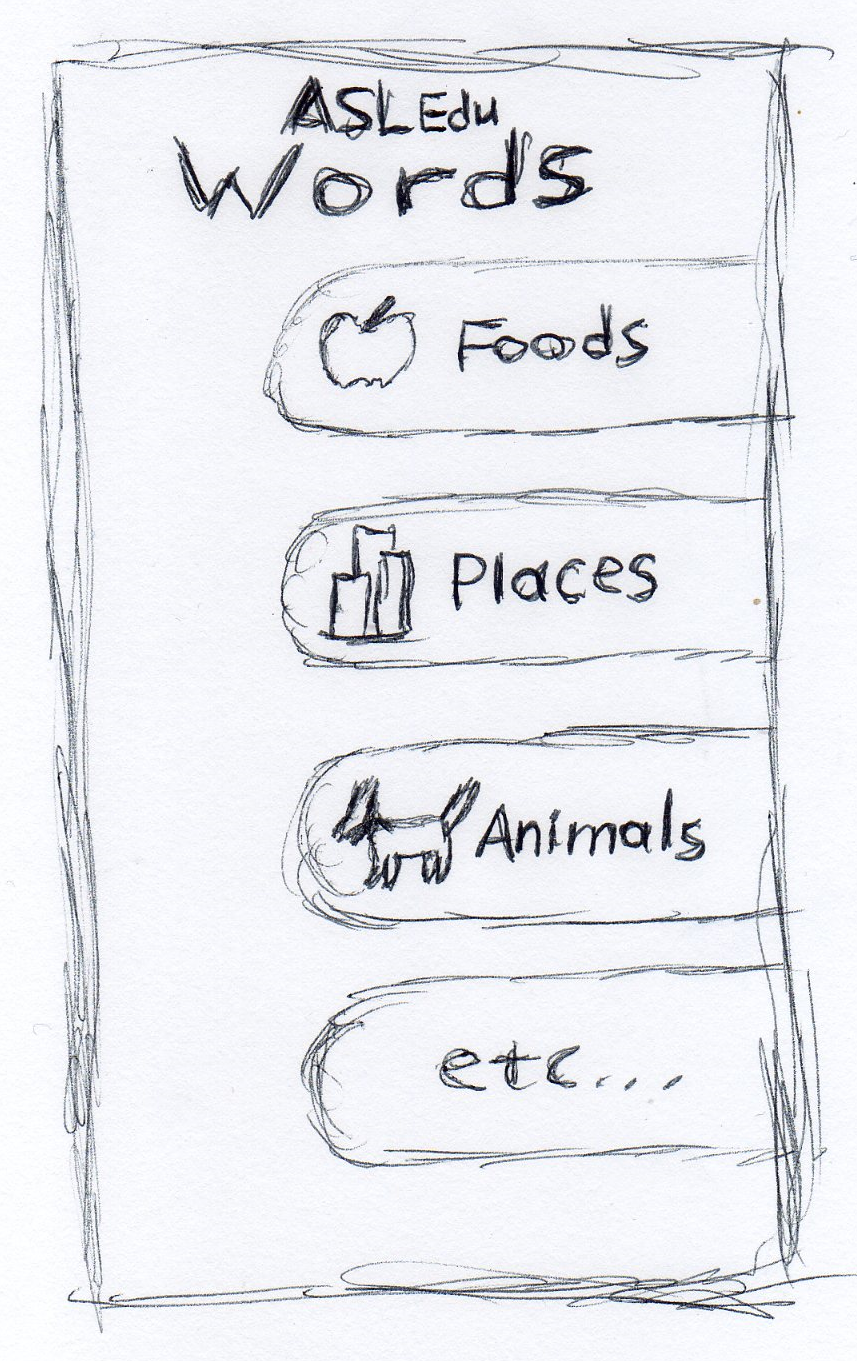 ASL Edu
Words
Foods
Places
Animals
etc...